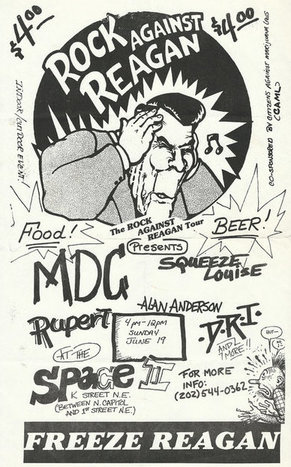 $4.00
$4.00
ROCK AGAINST
REAGAN
INDOOR/OUTDOOR EVENT.
CO-SPONSORED BY CITIZENS AGAINST MARIJUANA LAWS
(CAML)
Food!
The ROCK
AGAINST
REAGAN Tour
Presents
BEER!
MDC
SQUEEZE
LOUISE
Rupert
ALAN ANDERSON
4 PM-12PM
SUNDAY
JUNE 19
D.R.I.
AND 2
MORE!!
AT THE
SPACE II
K STREET N.E.
(BETWEEN N. CAPITOL
AND 1ST STREET N.E.)
FOR MORE
INFO:
(202) 544-0362
FREEZE REAGAN